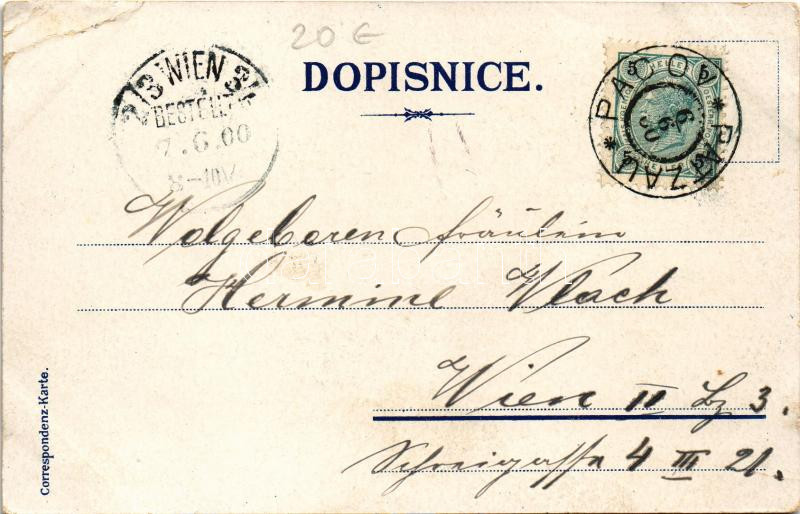 20 €
DOPISNICE.
WIEN
BESTELLT
7.6.00
5 HELLER 5
RATZAU
6 6 00
Wolgeboren fräulein
Hermine Wlach
Wien II Bz 3.
4 III 21.
Correspondenz-Karte.